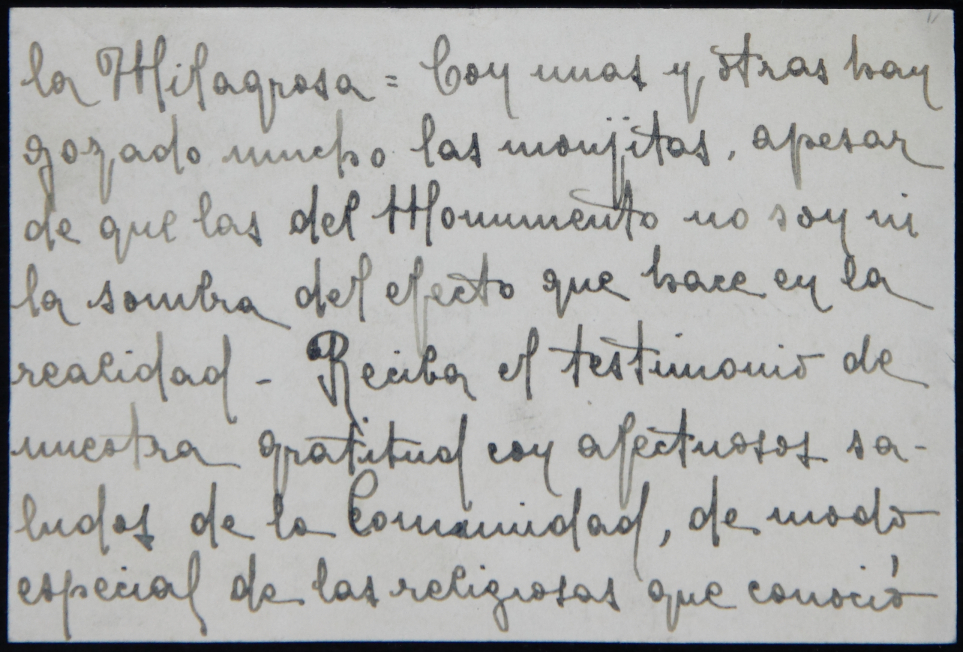 la Milagrosa = Con unas y otras han
gozado mucho las monjitas, apesar
de que las del Monumento no son ni
la sombra del efecto que hace en la
realidad - Reciba el testimonio de
nuestra gratitud con afectuosos sa-
ludos de la Comunidad, de modo
especial de las religiosas que conoció